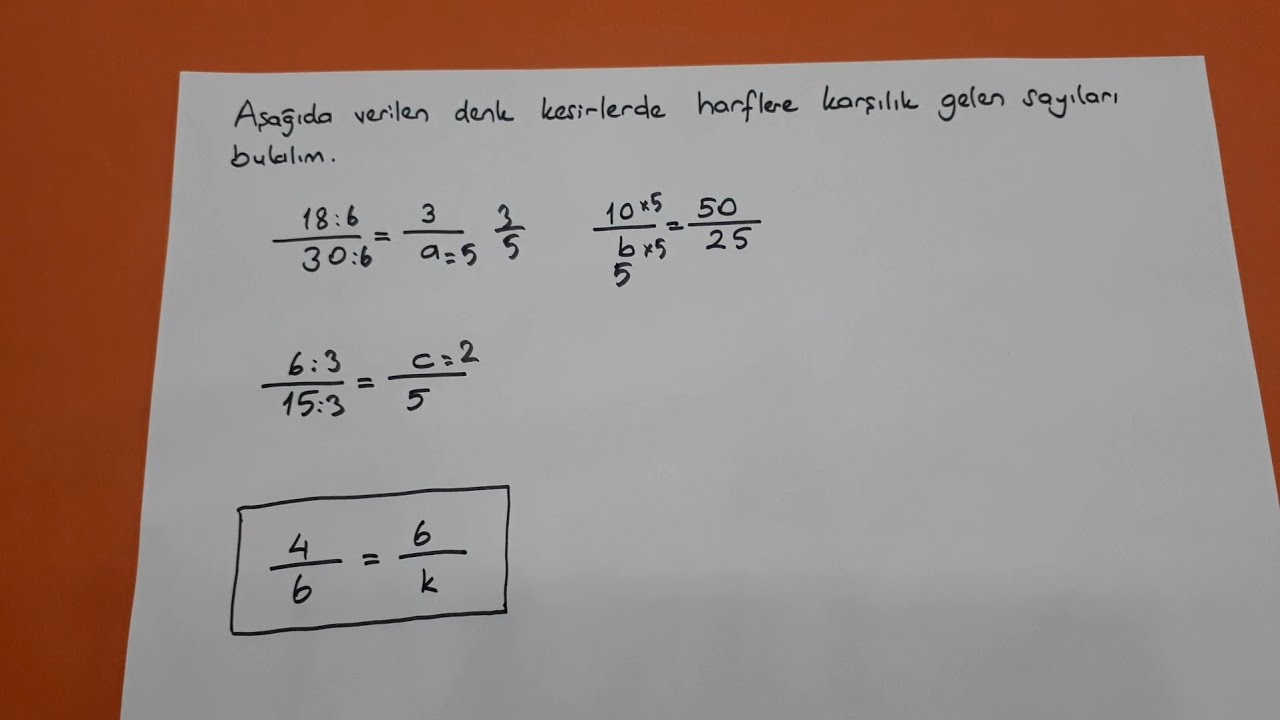 Aşağıda verilen denk kesirlerde harflere karşılık gelen sayıları
bulalım.
18:6 3 3 10×5 50
30:6 = a=5 5 b×5 = 25
5
6:3 c=2
15:3 = 5
4 6
6 = k